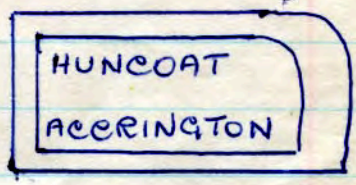 HUNCOAT
ACCRINGTON